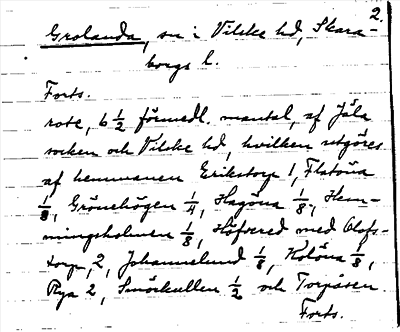 2.
Grolanda, sn i Vilske hd, Skara-
borgs l.
Forts.
rote, 6 1/2 förmedl. mantal, af Jäla
socken och Vilske hd, hvilken utgöres
af hemmanen Erikstorp 1, Flatöna
1/8, Grönehögen 1/4, Hagöna 1/8, Hem-
mingsholmen 1/8, Höfvered med Olofs-
torp, 2, Johannelund 1/8, Kolöna 1/8,
Rya 2, Smörkullen 1/2 och Torpåsen.
Forts.